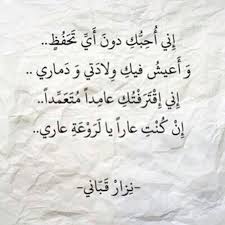 إِني أُحِبُّكِ دونَ أَيِّ تَحَفُظٍ..
وَ أَعيشُ فيكِ وِلادَتي وَ دَماري ..
إِني إِقتَرَفتُكِ عامِداً مُتَعَمِّداً..
إِنْ كُنْتِ عاراً يا لَرَوْعَةِ عاري..
-نِزارْ قَبّاني-